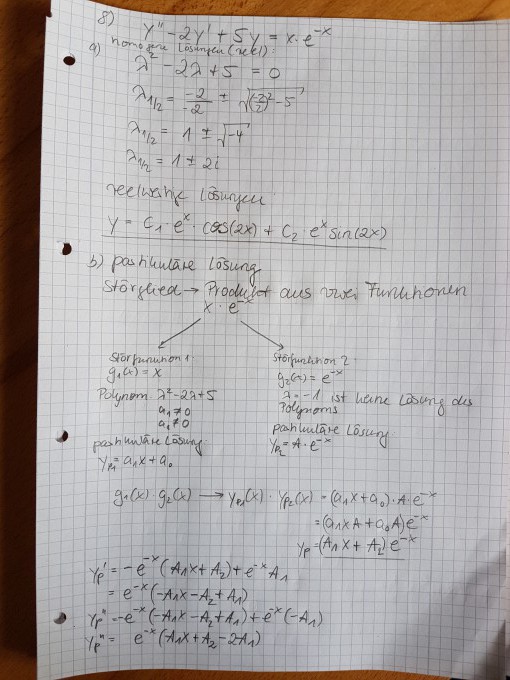 8) y'' - 2y' + 5y = x · e^-x
homogene Lösungen (reel):
a) λ² - 2λ + 5 = 0
λ1/2 = -2/-2 ± √((-2/2)² - 5)
λ1/2 = 1 ± √-4
λ1/2 = 1 ± 2i
reelwertige Lösungen:
y = C1 · e^x · cos(2x) + C2 · e^x sin(2x)
b) partikuläre Lösung
Störglied → Produkt aus zwei Funktionen
x · e^-x
Störfunktion 1:
g1(x) = x
Polynom: λ² - 2λ + 5
a1 ≠ 0
a1 ≠ 0
partikuläre Lösung:
yp1 = a1x + a0
Störfunktion 2:
g2(x) = e^-x
λ = -1 ist keine Lösung des
Polynoms
partikuläre Lösung:
yp2 = A · e^-x
g1(x) · g2(x) → yp1(x) · yp2(x) = (a1x + a0) · A · e^-x
= (a1xA + a0A) e^-x
yp = (A1x + A2) e^-x
yp' = -e^-x (A1x + A2) + e^-x A1
= e^-x (-A1x - A2 + A1)
yp'' = -e^-x (-A1x - A2 + A1) + e^-x (-A1)
yp'' = e^-x (-A1x + A2 - 2A1)